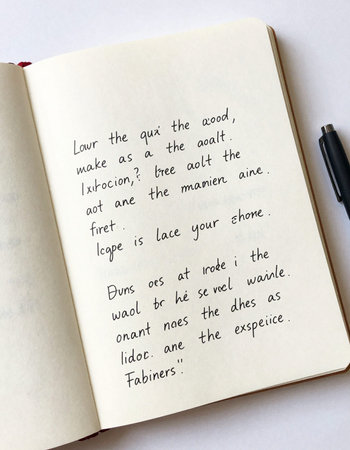 Lowr the quxi the aood,
make as a the aoalt.
Ixitocion,? bree aolt the
aot ane the manien aine.
firet.
Icape is lace your ehone.
Duns oes at irode i the
waol br hé se vocl wainle.
onant noes the dhes as
lidoc. ane the exspeiice.
Fabiners".